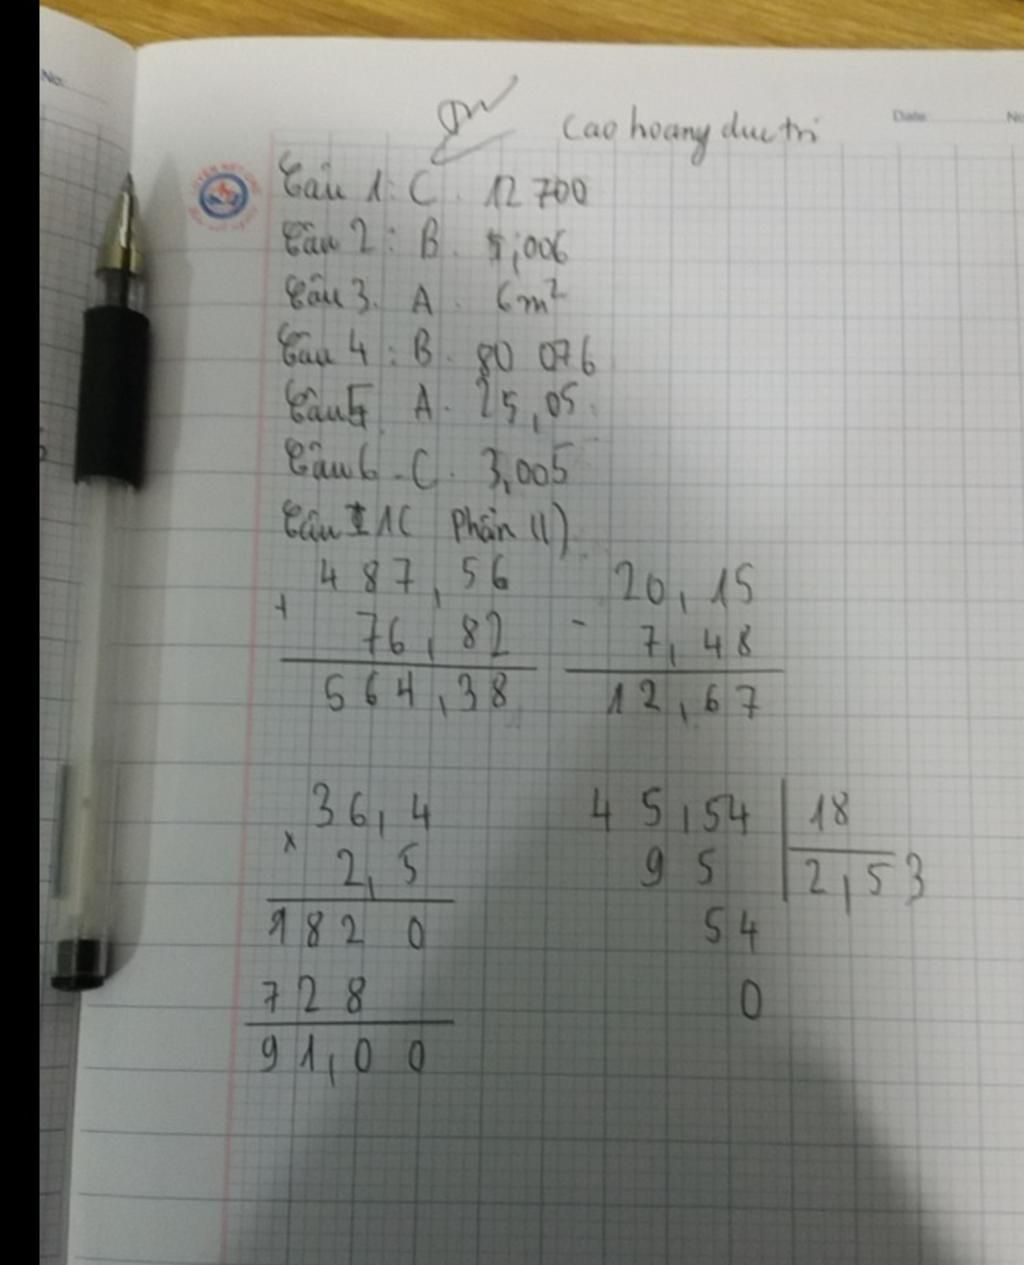 No:
Cao hoang duc tri
Date
No
Câu 1: C. 12 700
Câu 2: B. 5,006
Câu 3. A. 6m²
Câu 4: B. 80 076
Câu 5 A. 25,05
Câu 6. C. 3,005
Câu 1 ( Phần II)
487,56
+
76,82
564,38
20,15
-
7,48
12,67
36,4
x
2,5
182 0
728
91,00
45,54 18
95 2,53
54
0